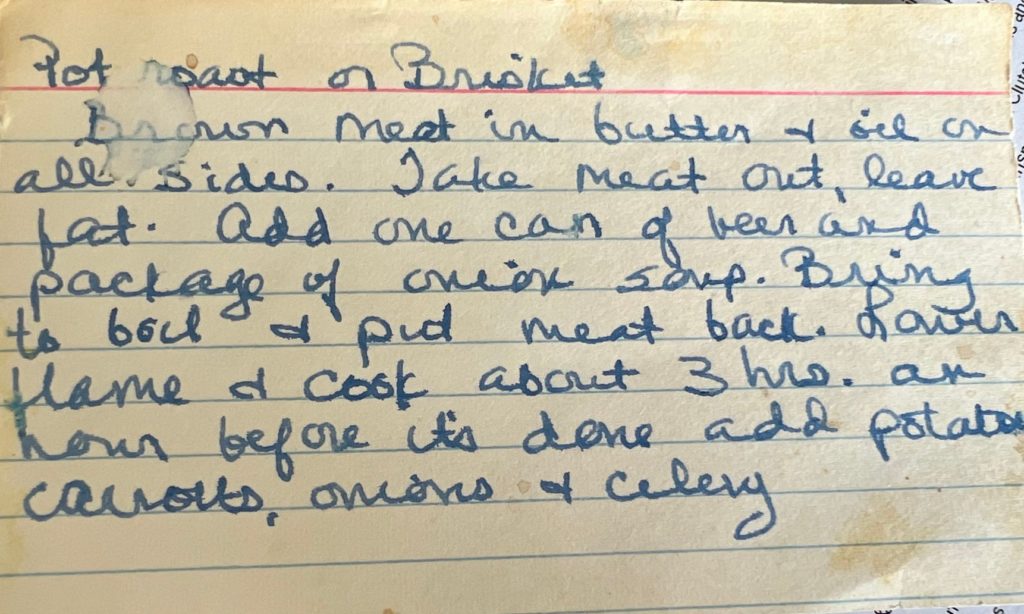 Pot roast or Brisket
Brown meat in butter & oil on
all sides. Take meat out, leave
fat. Add one can of beer and
package of onion soup. Bring
to boil & put meat back. Lower
flame & cook about 3 hrs. an
hour before it's done add potatoes
carrotts, onions & celery